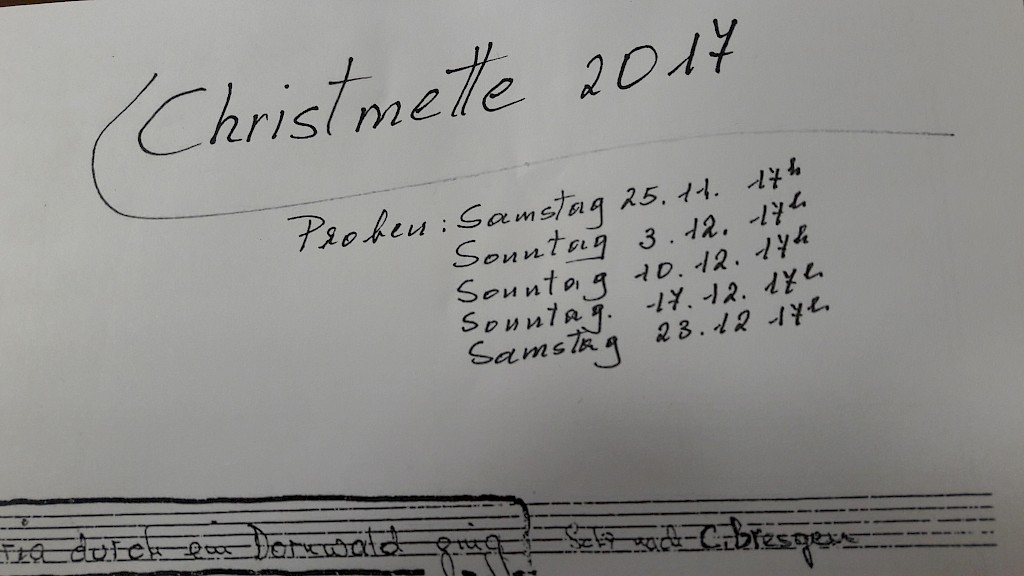 Christmette 2017
Proben: Samstag 25.11. 17h
Sonntag 3.12. 17h
Sonntag 10.12. 17h
Sonntag. 17.12. 17h
Samstag 23.12 17h
ria durch ein Dornwald ging Satz nach C.bresgen